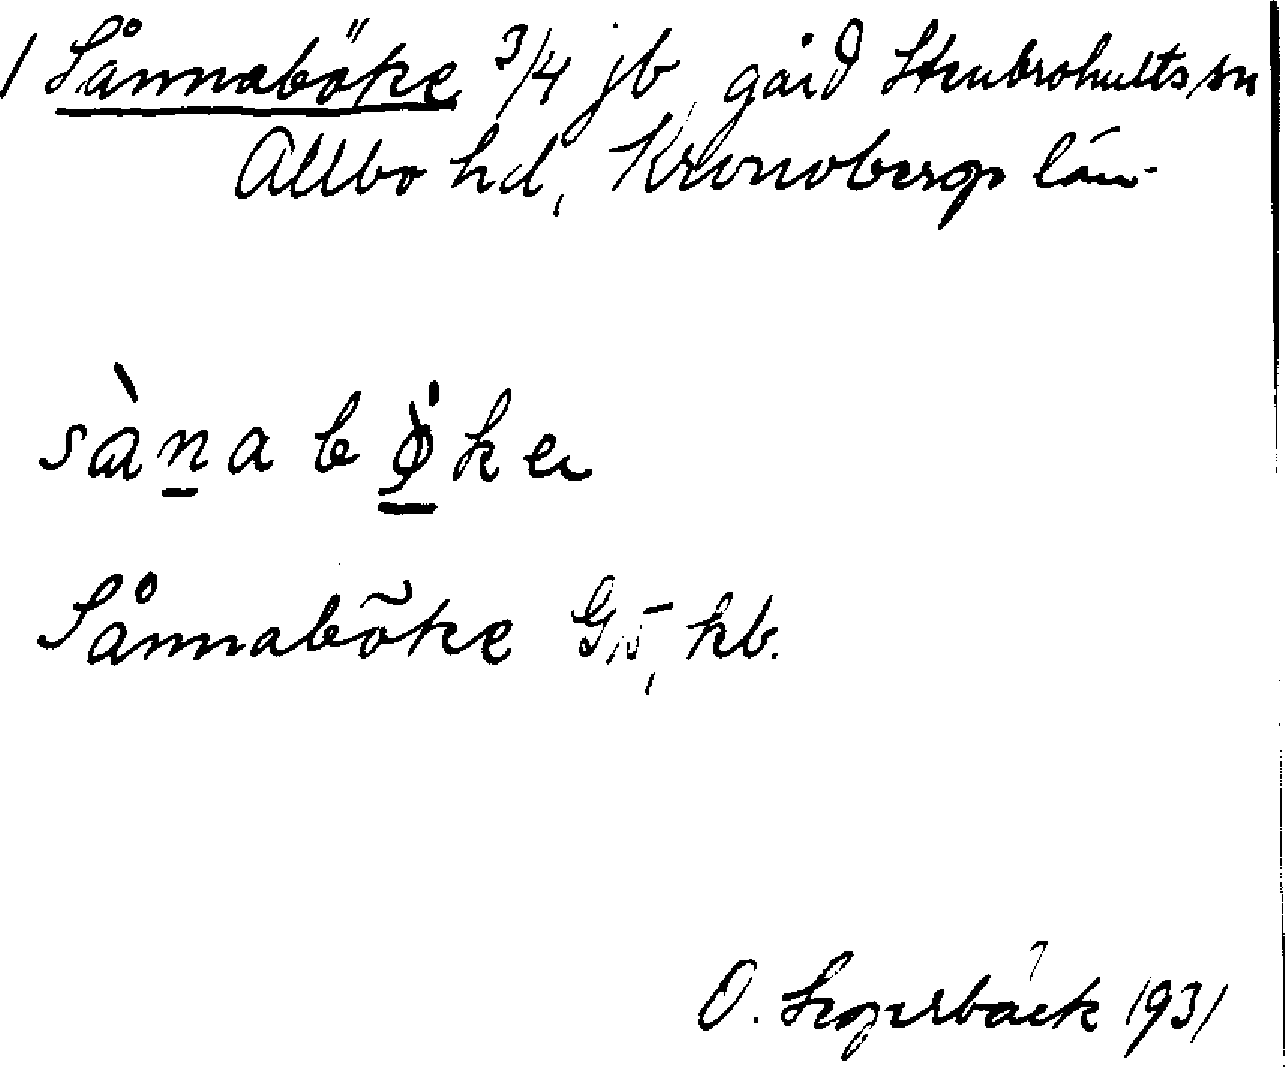 1 Sånnaböke 3/4 jb, gård Stenbrohults sn
Allbo hd, Kronobergs län
sànabø̀ke
Sånnabõke G15, kb.
O. Lagerbäck 1931